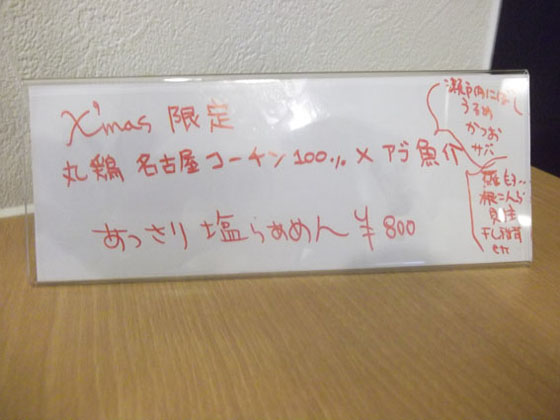 X'mas 限定
丸鶏 名古屋コーチン100% × アゴ魚介
あっさり 塩らぁめん ¥800
瀬戸内にぼし
うるめ
かつお
サバ
羅臼
根こんぶ
貝柱
干し椎茸
etc